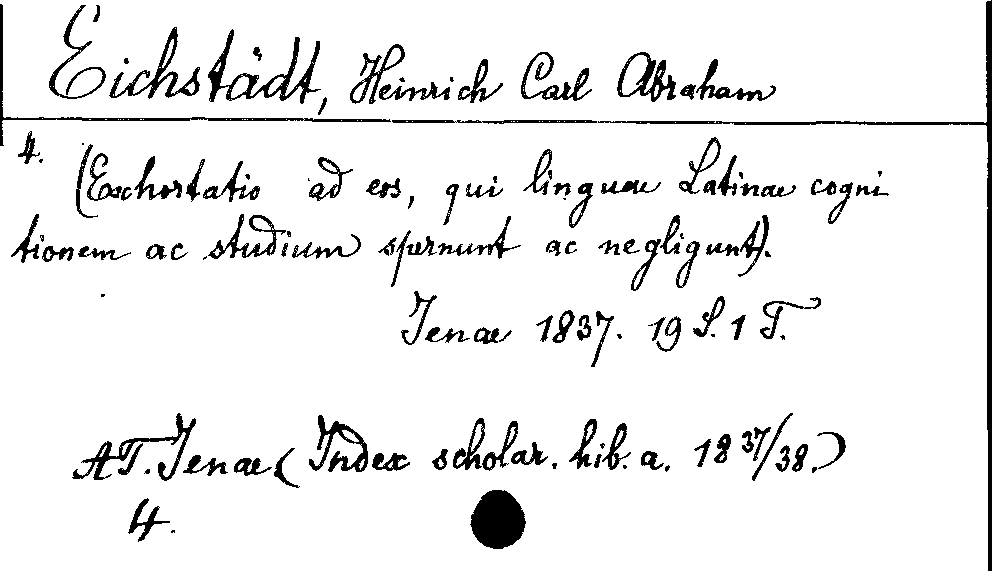 Eichstädt, Heinrich Carl Abraham
4.
(Exhortatio ad eos, qui linguae Latinae cogni
tionem ac studium spernunt ac negligunt).
Jenae 1837. 19 S. 1 T.
AT. Jenae (Index scholar. hib. a. 1837/38.)
4.